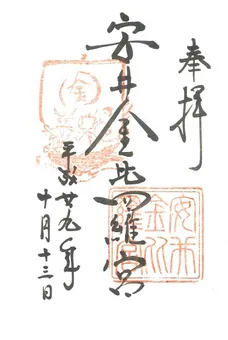 奉拝
安井金比羅宮
平成廿九年
十月十三日
金
安井
金比
羅宮